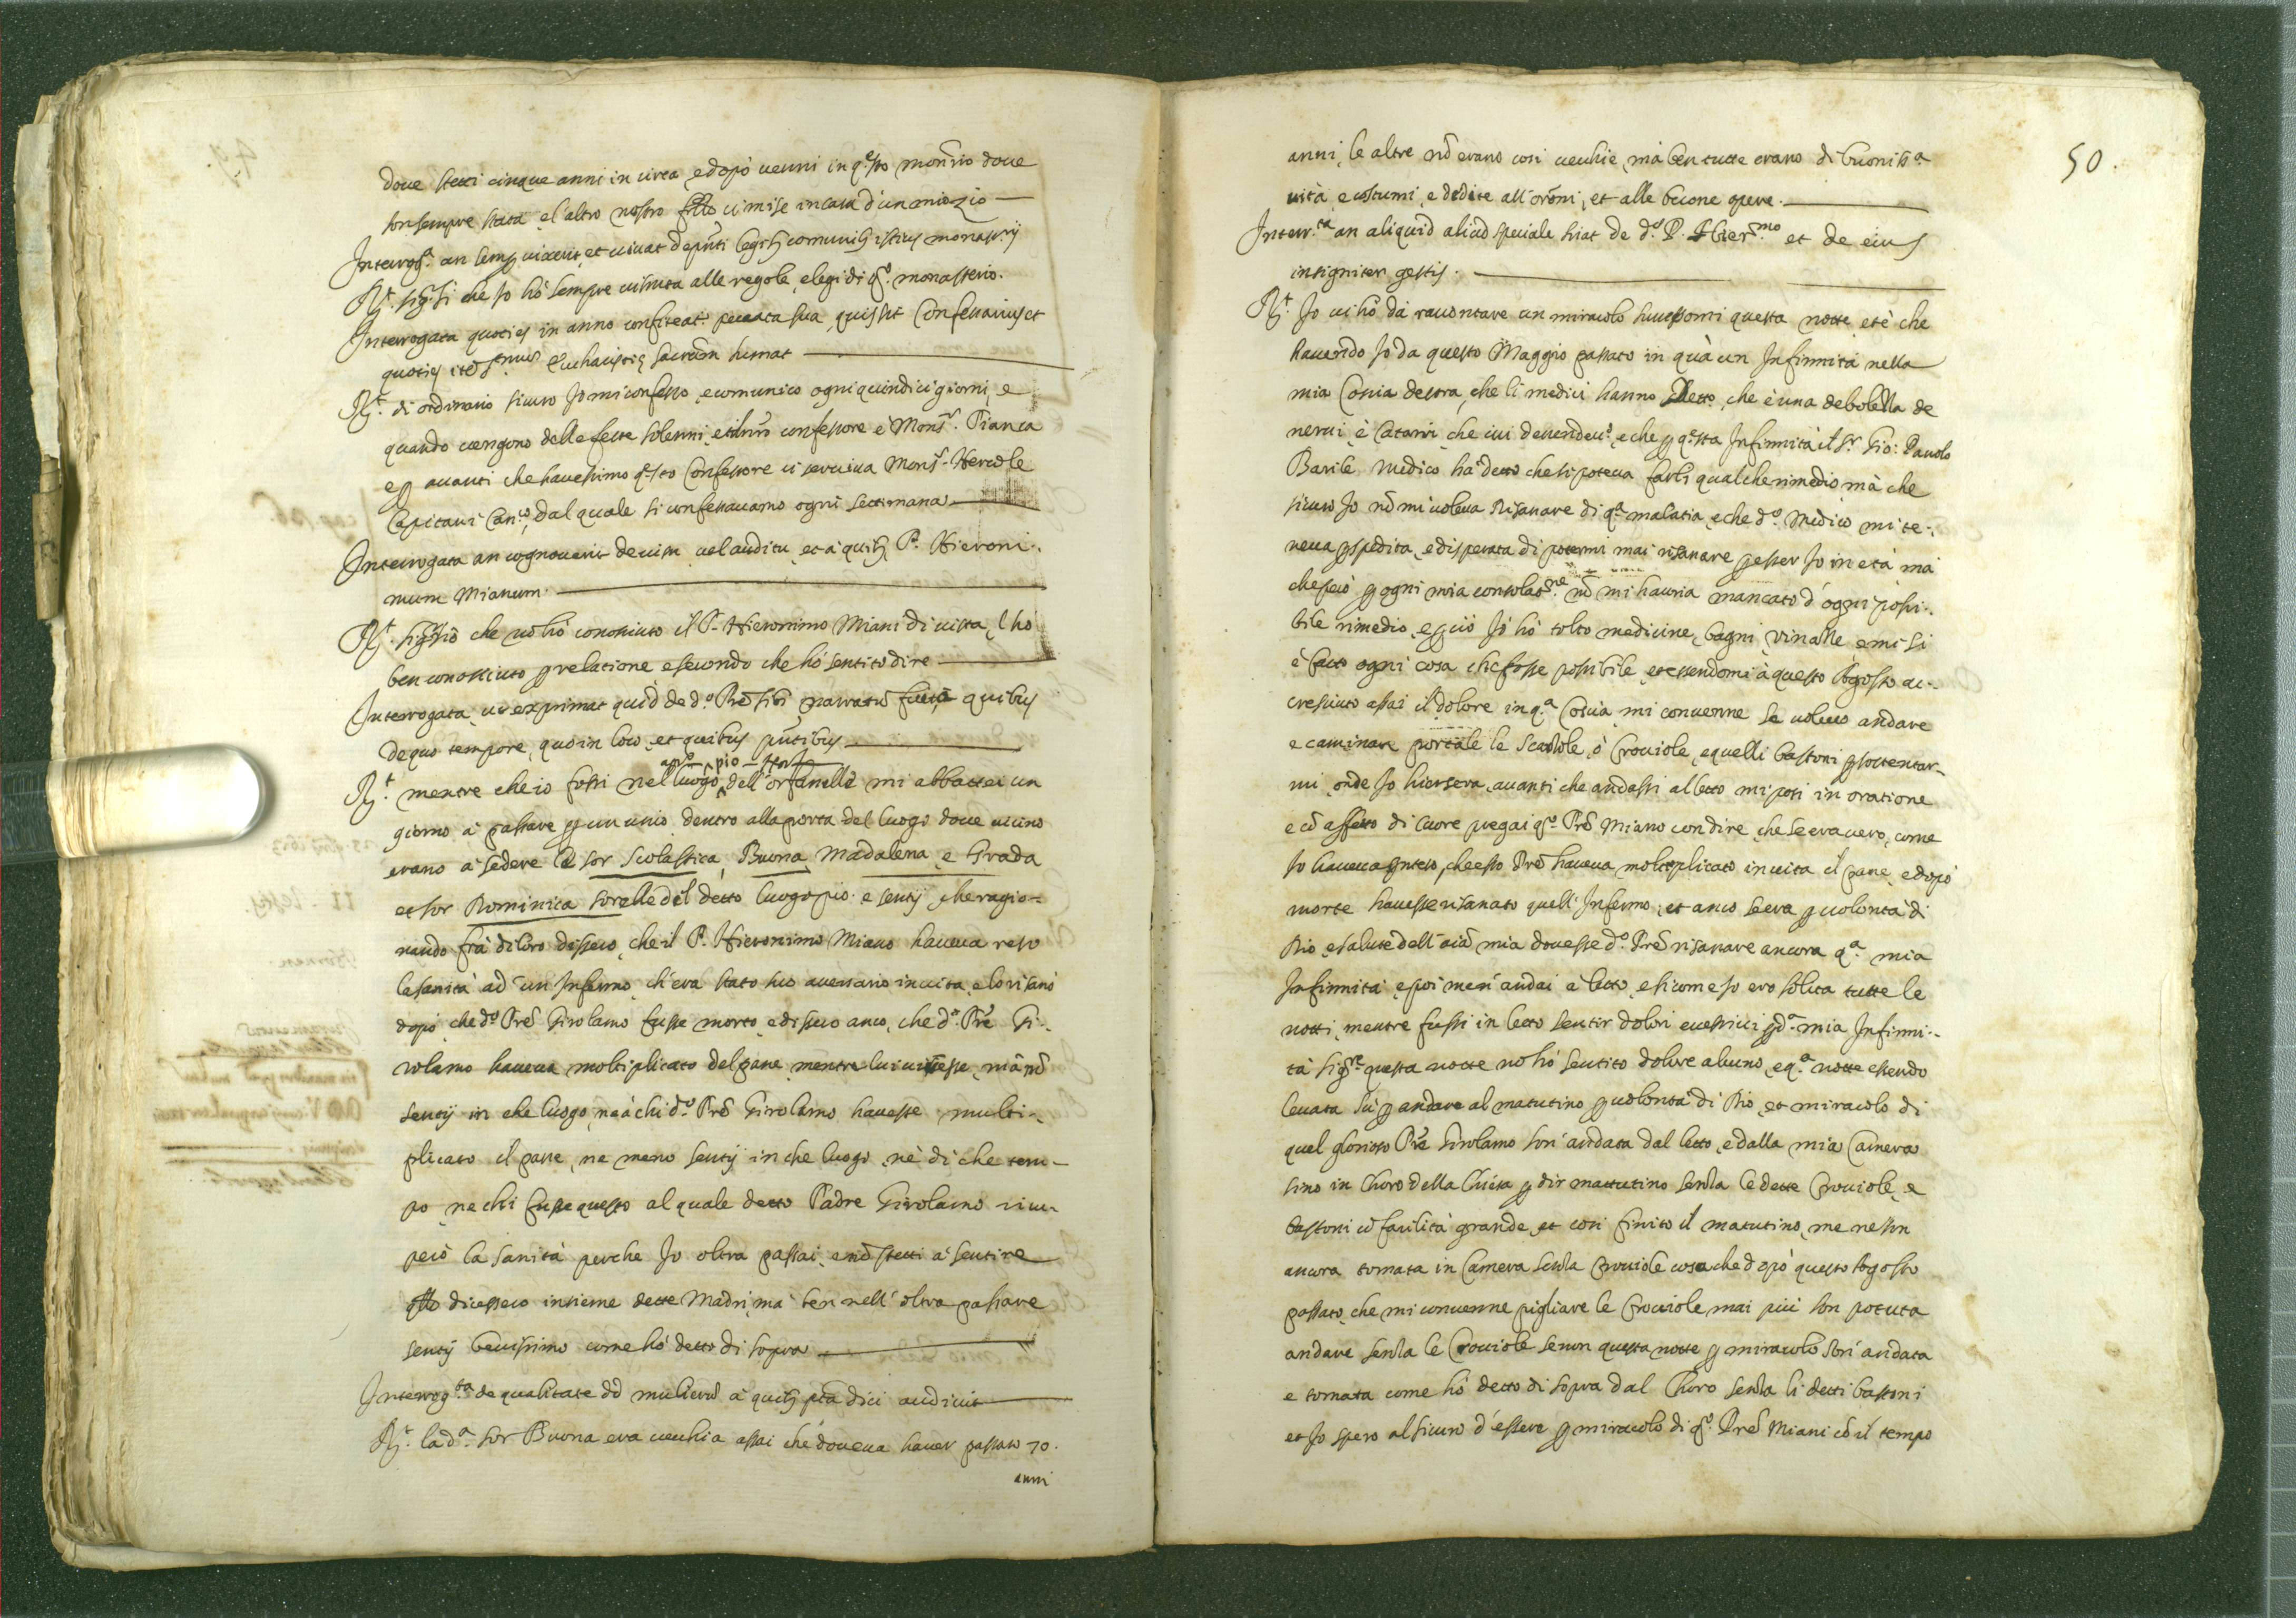 dove stetti cinque anni in circa, e dopò venni in q.sto mon.rio dove
son sempre stata, e l'altro nostro fr̃llo vi mise in casa d'un mio zio
Interrog.a an semp vixerit, et vivat legib comunib istius monasterij
R.t sig.r si che Jo hò sempre vissuta alle regole, e legi di q.o monasterio.
Interrogata quoties in anno confiteat.r peccata sua, quis sit Confessarius et
quoties Eucharistię sacram̃ sumat
R.t di ordinario sicuro Jo mi confesso, e comunico ogni quindici giorni, e
quando vengono delle feste solenni, et il nr̃o confessore è Mons.r Pianca
e p avanti che havessimo q.sto Confessore ci serviva Mons.r Hercole
Capitani Can.co, dal quale si confessavamo ogni settimana
Interrogata an cognoverit de visu, vel auditu, et à quib P. Hieroni-
mum Mianum
R.t sig.r nò che nõ hò conosciuto il P. Hieronimo Miani di vista, l'hò
ben conosciuto p relatione, e secondo che hò sentito dire
Interrogata, ut exprimat quid de d.o Prẽ sibi narratũ fuit, à quibus
de quo tempore, quo in loco, et quibus pñtibus
R.t mentre che io fossi nel luogo pio dell'orfanelle mi abbattei un
giorno à passare p un uscio dentro alla porta del luogo dove vicino
erano à sedere le sor Scolastica, Buona, Madalena, e Grada
et sor Dominica sorelle del detto luogo pio, e sentij che ragio-
nando frà di loro dissero, che il P. Hieronimo Miano haveva reso
la sanità ad un Infermo, ch'era stato suo aversario in vita, e lo risanò
dopò che d.o Prẽ Girolamo fusse morto, e dissero anco, che d.o Prẽ Gi-
rolamo haveva moltiplicato del pane, mentre lui vivesse, mà nõ
sentij in che luogo, ne à chi d.o Prẽ Girolamo havesse multi-
plicato il pane, ne meno sentij in che luogo, nè di che tem-
po, ne chi fusse questo al quale detto Padre Girolamo ricu-
però la sanità perche Jo oltra passai, e nõ stetti à sentire
q̃llo dicessero insieme dette Madri, ma ben nell'oltra passare
sentij benissimo come hò detto di sopra
Interrog.ta de qualitate dd mulierũ à quib pta dici audivit
R.t la d.a sor Buona era vecchia assai che doveva haver passato 70.
anni
50.
anni, le altre nõ erano cosi vecchie, mà ben tutte erano di buonis.a
vita e costumi, e dedite all'orõni, et alle buone opere.
Interr.ta an aliquid aliud speciale sciat de d.o P. Hier.mo et de eius
insigniter gestis.
R.t Jo vi hò da racontare un miracolo successomi questa notte, et è che
havendo Jo da questo Maggio passato in quà un Infirmità nella
mia Coscia destra, che li medici hanno detto, che è una debolezza de
nervi, è Catarri, che ivi descendevō, e che p q.sta Infirmità il S.r Gio: Pauolo
Barile medico hà detto che si poteva farli qualche rimedio, mà che
sicuro Jo nõ mi voleva risanare di q.a malatia, e che d.o Medico mi te-
neva p spedita, e disperata di potermi mai risanare p esser Jo in età, mà
che però p ogni mia consolat.ne nõ mi havria mancato d'ogni possi-
bile rimedio, e p ciò Jo hò tolto medicine, bagni, vinazze, e mi si
è fatto ogni cosa che fosse possibile, et essendomi à questo Agosto ac-
cresciuto assai il dolore in q.a Coscia, mi convenne se volevo andare
e caminare portale le scazzole, ò Crociole, e quelli bastoni p sostentar-
mi, onde Jo hiersera, avanti che andassi al letto mi posi in oratione
e cõ affetto di cuore pregai q.o Prẽ Miano con dire, che se era vero, come
Jo haveva inteso, che esso Prẽ haveva moltiplicato in vita il pane, e dopò
morte havesse risanato quell'Infermo, et anco se era p volontà di
Dio, e salute dell'aĩa mia dovesse d.o Prẽ risanare ancora q.a mia
Infirmità, e poi men'andai à letto, e sicome Jo ero solita tutte le
notti, mentre fussi in letto sentir dolori eccessivi p d.a mia Infirmi-
tà sig.re questa notte nõ hò sentito dolore alcuno, e q.a notte essendo
levata sù p andare al matutino p volontà di Dio, et miracolo di
quel glorioso Prẽ Girolamo son andata dal letto, e dalla mia Camera
sino in Choro della Chiesa p dir mattutino senza le dette Crociole, e
bastoni cõ facilità grande, et cosi finito il matutino, me ne son
ancora tornata in Camera senza Crociole cosa che dopò questo Agosto
passato, che mi convenne pigliare le Crociole mai più son potuta
andare senza le Crociole senon questa notte p miracolo son andata
e tornata come hò detto di sopra dal Choro senza li detti bastoni
et Jo spero al sicuro d'essere p miracolo di q.o Prẽ Miani cõ il tempo